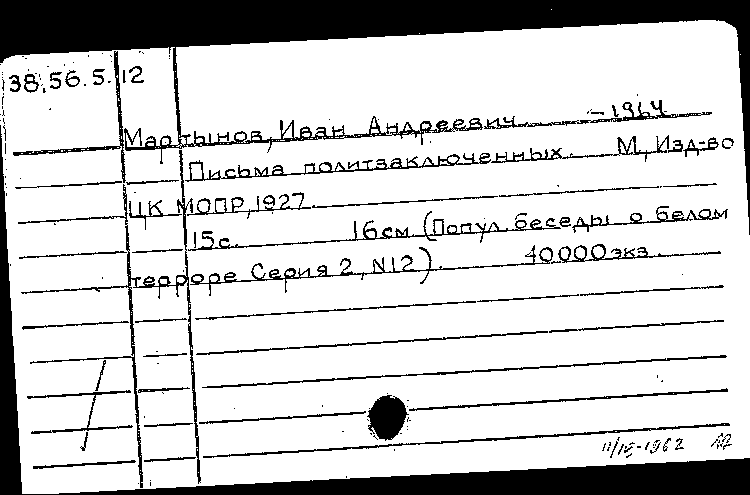 38,56.5.12
Мартынов, Иван Андреевич. -1964
Письма политзаключенных. М., Изд-во
ЦК МОПР, 1927.
15с. 16см (Попул. беседы о белом
терроре Серия 2, N12). 40000экз.
11/IX-1962